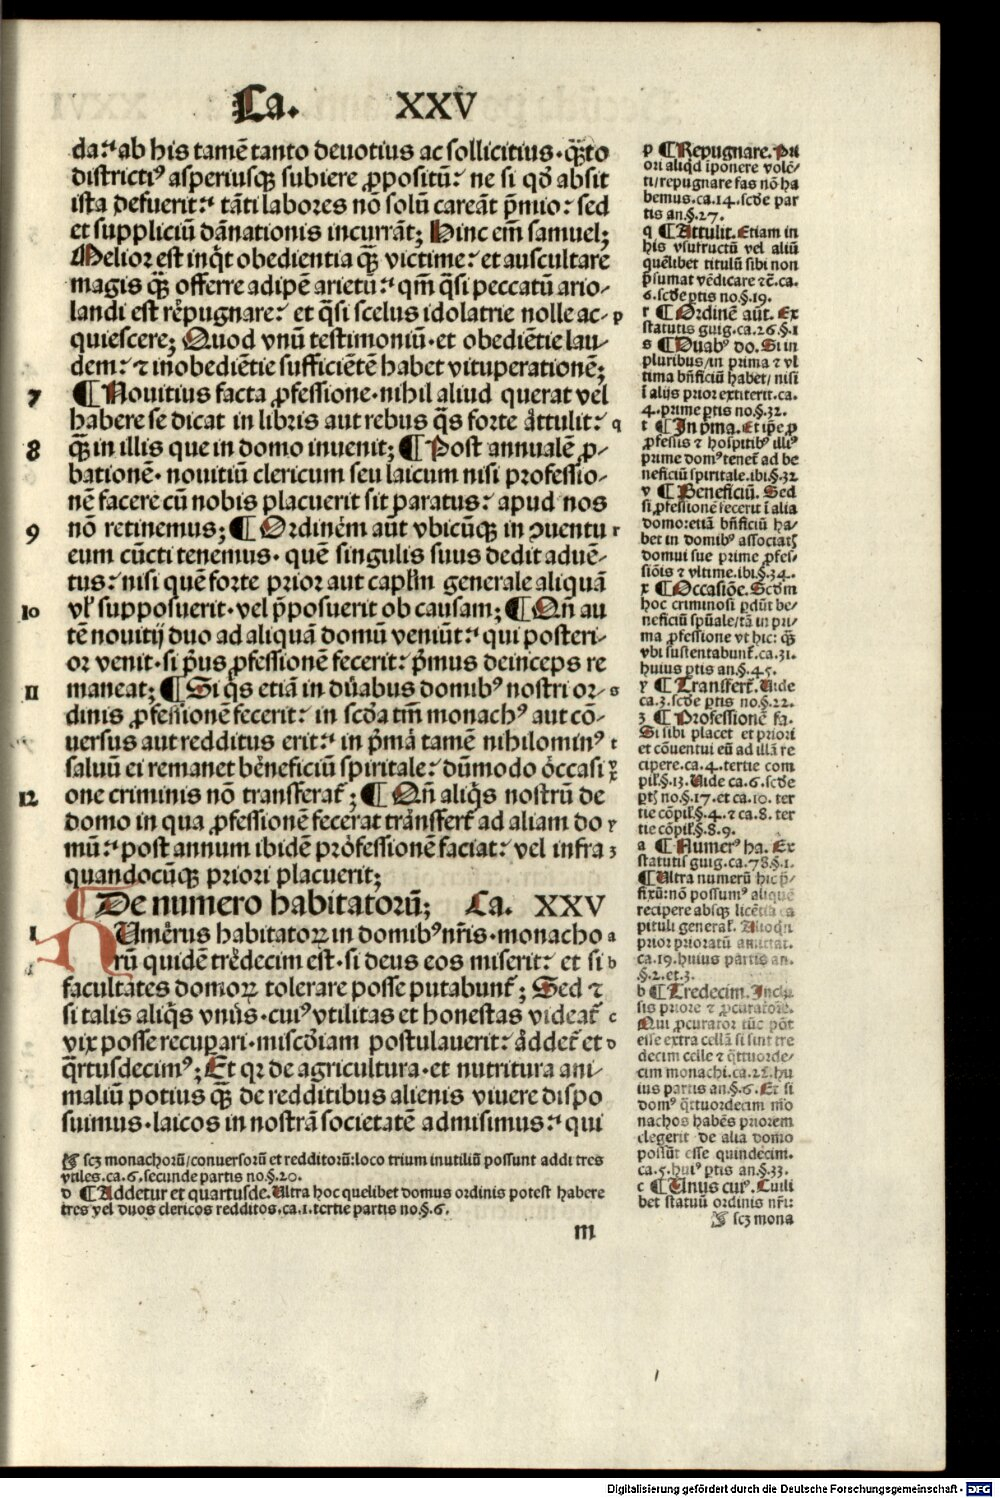 Ca. XXV
da:' ab his tamē tanto deuotius ac sollicitius. q̄ȝto
districti⁹ asperiusqȝ subiere ꝓpositū: ne si qḋ absit
ista defuerit:' tāti labores nō solū careāt p̄mio: sed
et suppliciū dānationis incurrāt; Hinc em̄ samuel;
Melior est inq̇t obedientia q̄ȝ victime: et auscultare
magis q̄ȝ offerre adipē arietū:' qm̄ q̇si peccatū ario-
landi est repugnare: et q̇si scelus idolatrie nolle ac- p
quiescere; Quod vnū testimoniū. et obediētie lau-
dem: ⁊ inobediētie sufficiētē habet vituperationē;
7 ¶ Nouitius facta ꝓfessione. nihil aliud querat vel
habere se dicat in libris aut rebus q̄s forte attulit: q
8 q̄ȝ in illis que in domo inuenit; ¶ Post annualē ꝓ-
bationē. nouitiū clericum seu laicum nisi professio-
nē facere cū nobis placuerit sit paratus: apud nos
9 nō retinemus; ¶ Ordinem aūt vbicūqȝ in ꝯuentu r
eum cūcti tenemus. quē singulis suus dedit aduē-
tus: nisi quē forte prior aut caplm̄ generale aliquā
10 vl' supposuerit. vel p̄posuerit ob causam; ¶ Qn̄ au
tē nouitij duo ad aliquā domū veniūt:' qui posteri-
or venit. si p̄us ꝓfessionē fecerit: p̄mus deinceps re
11 maneat; ¶ Si q̇s etiā in duabus domib⁹ nostri or- s
dinis ꝓfessionē fecerit: in scḋa tm̄ monach⁹ aut cō-
uersus aut redditus erit:' in p̄ma tamē nihilomin⁹ t
saluū ei remanet beneficiū spirituale: dūmodo occasi v x
12 one criminis nō transferat̄; ¶ Qn̄ aliq̇s nostrū de
domo in qua ꝓfessionē fecerat transfert̄ ad aliam do y
mū:' post annum ibidē professionē faciat: vel infra ȝ
quandocūqȝ priori placuerit;
¶ De numero habitatorū; Ca. XXV
1 NUmerus habitatoꝝ in domib⁹ nr̄is. monacho a
rū quidē tredecim est. si deus eos miserit: et si b
facultates domoꝝ tolerare posse putabunt̄; Sed ⁊
si talis aliq̇s vnus. cui⁹ vtilitas et honestas videat̄ c
vix posse recuꝑari. miscḋiam postulauerit: addet̄ et d
q̄rtusdecim⁹; Et qꝛ de agricultura. et nutritura ani-
maliū potius q̄ȝ de redditibus alienis viuere dispo
suimus. laicos in nostrā societatē admisimus:' qui
scȝ monachorū/conuersorū et redditorū: loco trium inutiliū possunt addi tres
vtiles. ca. 6. secunde partis no. §. 20.
d ¶ Addetur et quartusde. Ultra hoc quelibet domus ordinis potest habere
tres vel duos clericos redditos. ca. 1. tertie partis no. §. 6.
m
p ¶ Repugnare. Pri
ori aliqḋ īponere volē-
ti/repugnare fas nō ha
bemus. ca. 14. scḋe par
tis an. §. 27.
q ¶ Attulit. Etiam in
his vsufructū vel aliū
quēlibet titulū sibi non
p̄sumat vēdicare ⁊c̄. ca.
6. scḋe ꝑtis no. §. 19.
r ¶ Ordinē aūt. Ex
statutis guig. ca. 26. §. 1
s ¶ Duab⁹ do. Si in
pluribus/in prima ⁊ vl
tima bn̄ficiū habet/nisi
ī alijs prior extiterit. ca.
4. prime ꝑtis no. §. 32.
t ¶ In p̄ma. Et ip̄e ꝓ
ꝓfessis ⁊ hospitib⁹ illi⁹
prime dom⁹ tenet̄ ad be
neficiū spirituale. ibi. §. 32
v ¶ Beneficiū. Sed
si ꝓfessionē fecerit ī alia
domo: etiā bn̄ficiū ha-
bet in domib⁹ associat̄
domui sue prime ꝓfes-
siōis ⁊ vltime. ibi. §. 34.
x ¶ Occasiōe. Scḋm
hoc criminosi ꝑdūt be-
neficiū spūale/tā in pri-
ma ꝓfessione vt hic: q̄ȝ
vbi sustentabunt̄. ca. 31.
huius ꝑtis an. §. 45.
y ¶ Transfert̄. Uide
ca. 3. scḋe ꝑtis no. §. 22.
ȝ ¶ Professionē fa.
Si sibi placet et priori
et cōuentui eū ad illā re
cipere. ca. 4. tertie com
pil'. §. 13. Uide ca. 6. scḋe
ꝑt̄ no. §. 17. et ca. 10. ter
tie cōpil'. §. 4. ⁊ ca. 8. ter
tie cōpil'. §. 8. 9.
a ¶ Numer⁹ ha. Ex
statutis guig. ca. 78. §. 1.
¶ Ultra numerū hic p̄-
fixū: nō possum⁹ aliquē
recipere absqȝ licētia ca
pituli general'. Alioqn̄
prior prioratū amittat.
ca. 19. huius partis an.
§. 2. et. 3.
b ¶ Tredecim. Inclu
sis priore ⁊ ꝓcuratore.
Qui ꝓcurator tūc pōt
esse extra cellā si sint tre
decim celle ⁊ q̄ttuorde-
cim monachi. ca. 22. hu
ius partis an. §. 6. Et si
dom⁹ q̄ttuordecim mo
nachos habēs priorem
elegerit de alia domo
possūt esse quindecim.
ca. 5. hui⁹ ꝑtis an. §. 33.
c ¶ Unus cui⁹. Cuili
bet statuū ordinis nr̄i:
scȝ mona
Digitalisierung gefördert durch die Deutsche Forschungsgemeinschaft - DFG